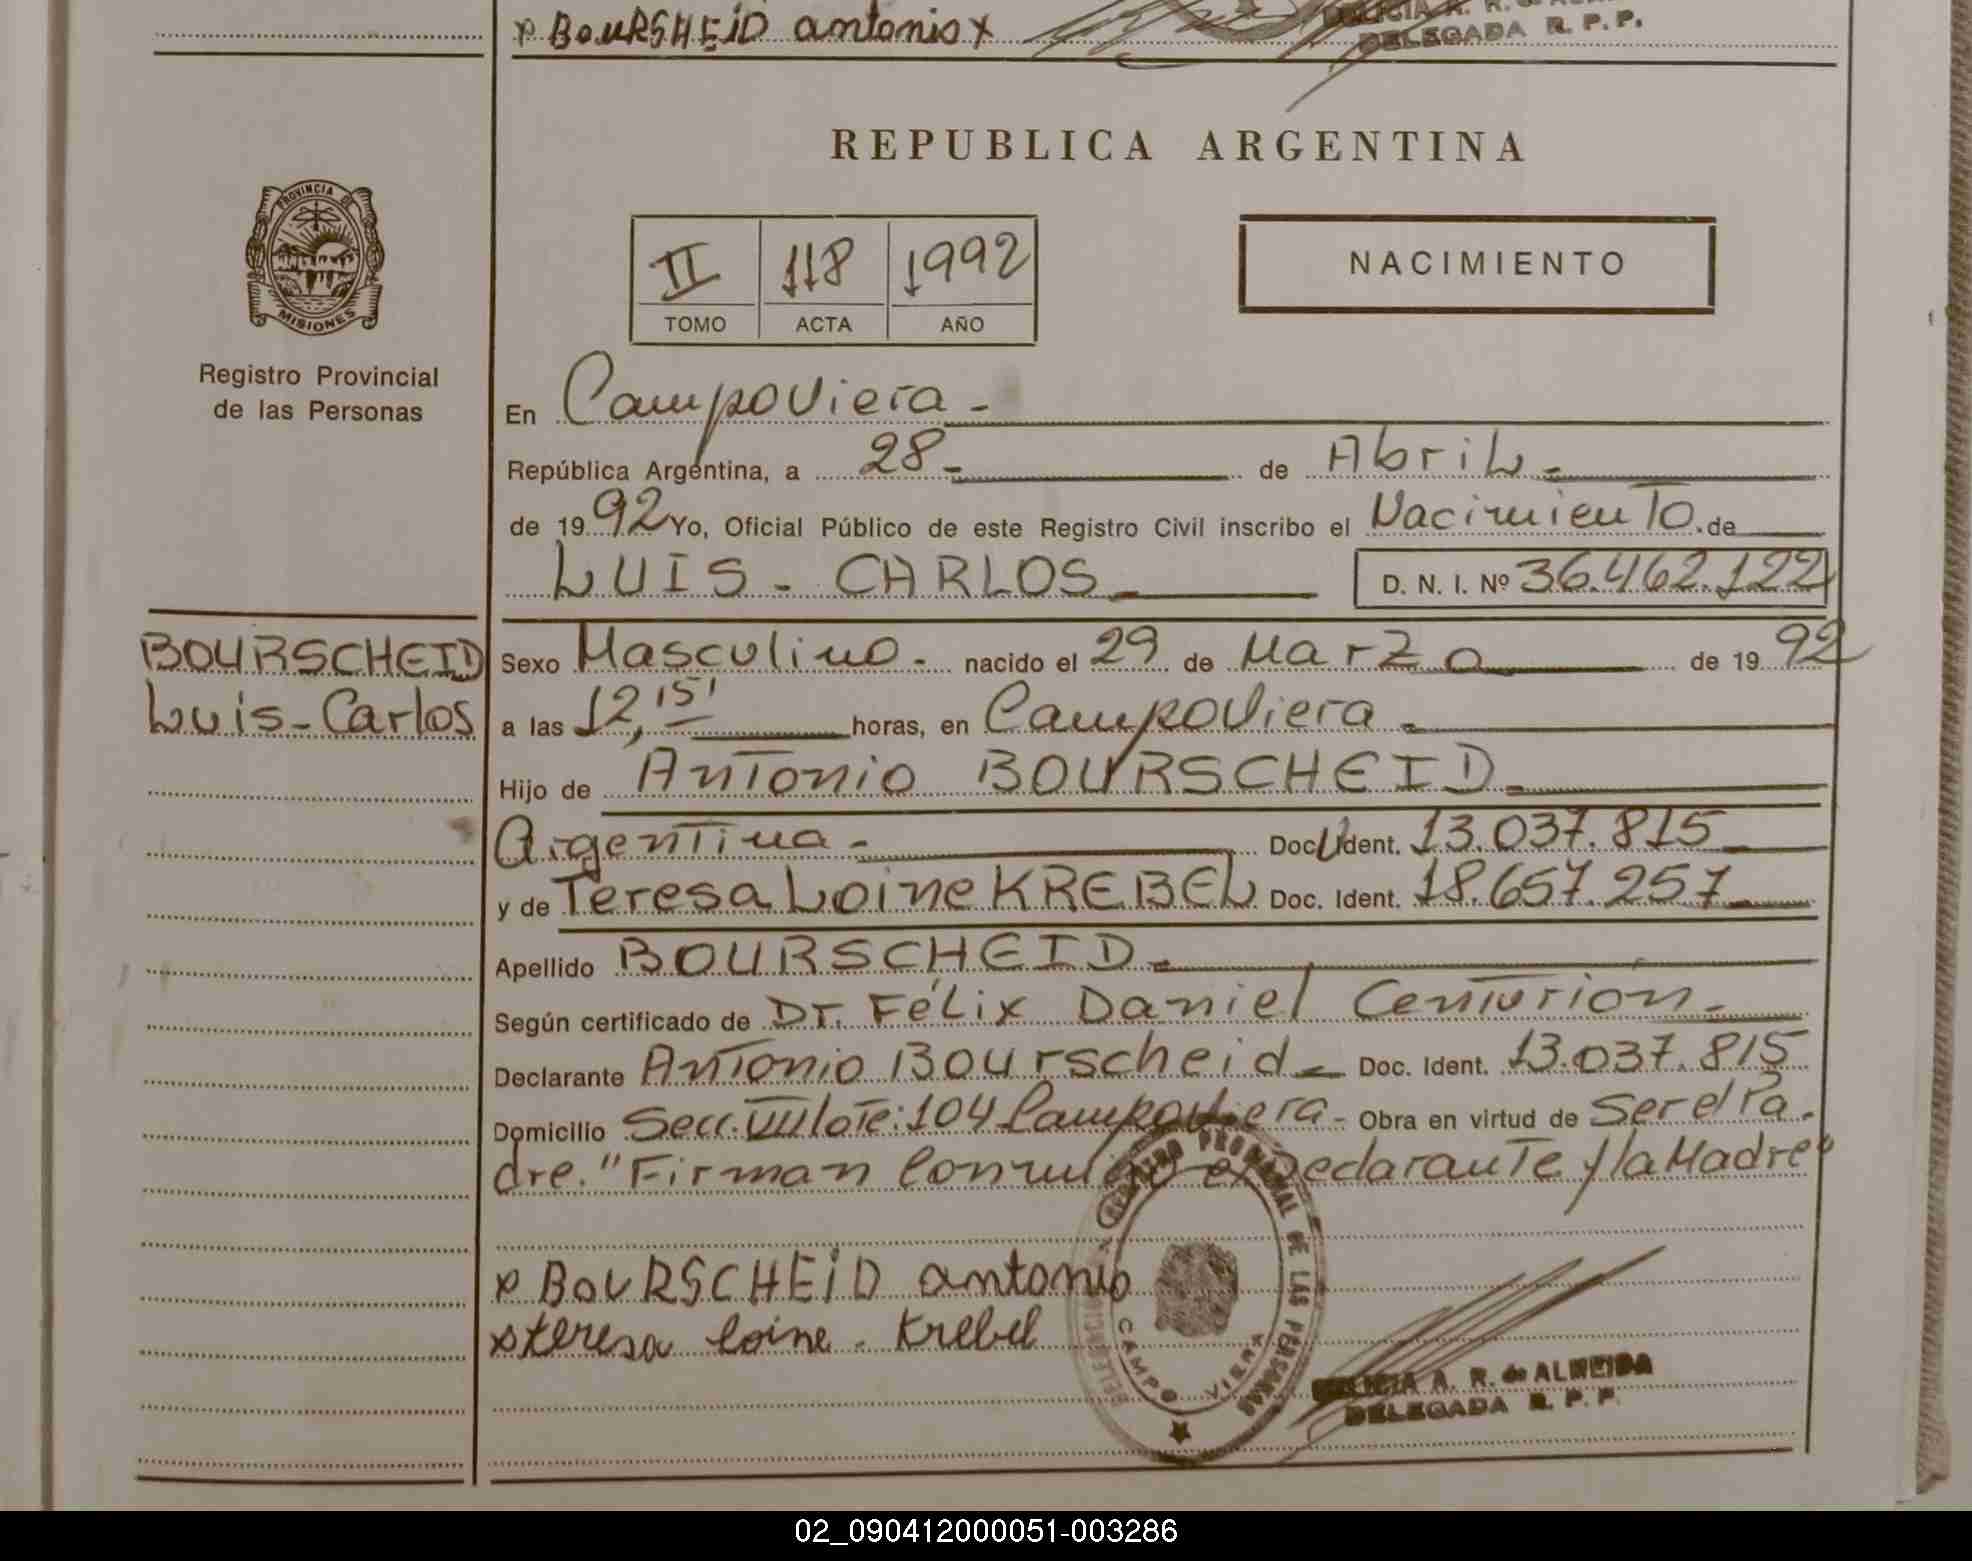 x BOURSCHEID antonio x
DELEGADA R. P. P.
REPUBLICA ARGENTINA
PROVINCIA DE
MISIONES
Registro Provincial
de las Personas
II 118 1992
TOMO ACTA AÑO
NACIMIENTO
En Campoviera -
República Argentina, a 28 - de Abril -
de 19 92 Yo, Oficial Público de este Registro Civil inscribo el Nacimiento. de
LUIS - CARLOS - D. N. I. Nº 36.462.122
BOURSCHEID
Luis - Carlos
Sexo Masculino - nacido el 29 de Marzo de 19 92
a las 12,15' horas, en Campoviera -
Hijo de Antonio BOURSCHEID -
Argentina - Doc U Ident. 13.037.815
y de Teresa Loine KREBEL Doc. Ident. 18.657.257
Apellido BOURSCHEID -
Según certificado de Dr. Félix Daniel Centurion -
Declarante Antonio Bourscheid - Doc. Ident. 13.037.815
Domicilio Secc. VIII lote: 104 Campoviera - Obra en virtud de Ser el Pa-
dre. "Firman Conmigo el Declarante y la Madre"
x BOURSCHEID antonio
x teresa loine - Krebel
REGISTRO PROVINCIAL DE LAS PERSONAS
CAMPO VIERA
A. R. de ALMEIDA
DELEGADA R. P. P.
02_090412000051-003286